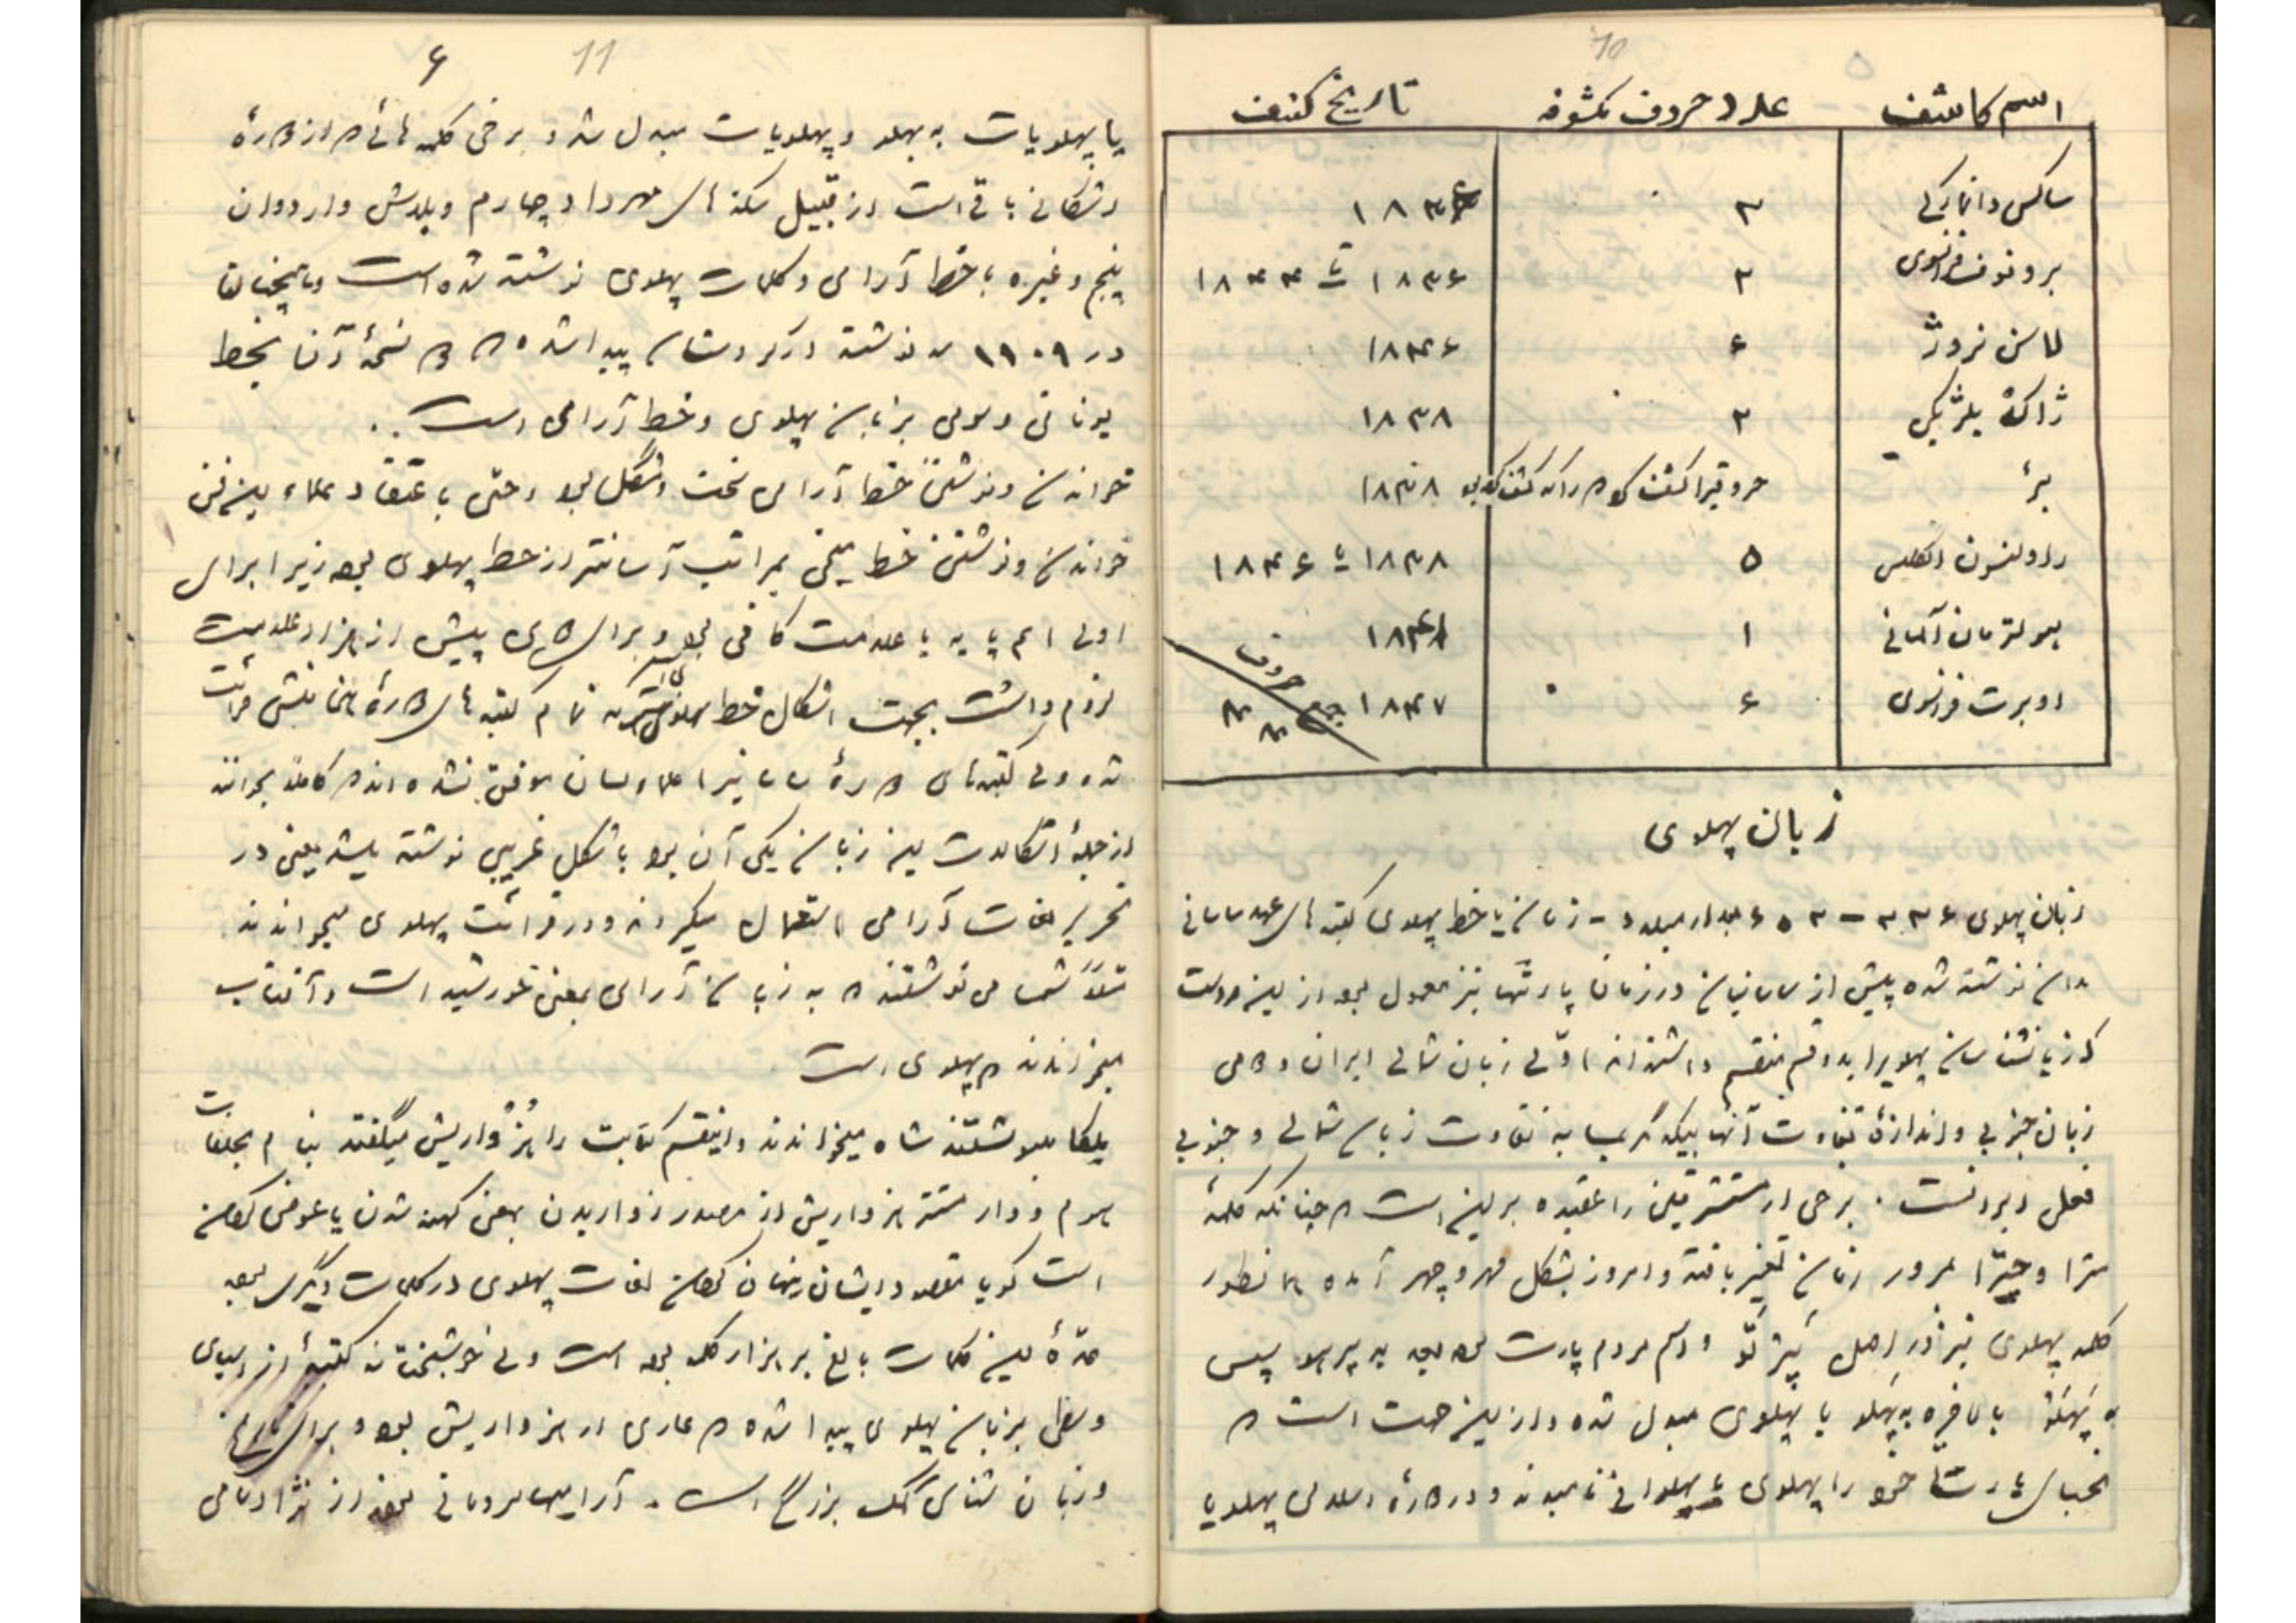 10
اسم کاشف عدد حروف مکشوفه تاریخ کشف
ساکس دانمارکی ۲
برونوف فرانسوی ۲ ۱۸۳۶ تا ۱۸۴۴
لاسن نروژ ۶ ۱۸۳۶
ژاکه بلژیکی ۲ ۱۸۳۸
بئر ۱۸۳۸
راولنسون انگلیس ۵ ۱۸۳۸ تا ۱۸۴۶
هولتزمان آلمانی ۱
اوبرت فرانسوی ۶ ۱۸۴۷
جمع حروف
زبان پهلوی
زبان پهلوی بعد از میلاد - زبان یا خط پهلوی کتبه های عهد ساسانی
بدان نوشته شده پیش از ساسانیان در زمان پارتها نیز معمول بوده از این روست
که زبانشناسان پهلویرا بدو قسم منقسم داشته‌اند اوّلی زبان شمالی ایران و دومی
زبان جنوبی و اندازهٔ تفاوت آنها بیکدیگر بسا به تفاوت زبان شمالی و جنوبی
فعلی ایرانست . برخی از مستشرقین را عقیده بر این است که چنانکه کلمهٔ
میترا و چیترا بمرور زمان تغییر یافته و امروز بشکل مهر و چهر آمده همانطور
کلمه پهلوی نیز در اصل اسم مردم پارت بوده پس
به پهلو یا پهلوی مبدل شده و از این جهت است که
خود را پهلوی یا پهلوانی نامیدند و در دورهٔ اسلامی پهلویا
11
۶
یا پهلویات به بهلو و پهلویات مبدل شد و برخی کلمه هائی که از دورهٔ
اشکانی باقی است از قبیل سکه های مهرداد چهارم و بلاش و اردوان
پنجم و غیره با خط آرامی و کلمات پهلوی نوشته شده است
در ۱۹۰۹ سه نوشته در کردستان پیدا شده که دو نسخهٔ آن بخط
یونانی و سومی بزبان پهلوی و خط آرامی است . .
خواندن و نوشتن خط آرامی سخت و مشکل بود و حتی باعتقاد علماء این فن
خواندن و نوشتن خط میخی بمراتب آسانتر از خط پهلوی بوده زیرا برای
اولی علامت کافی بود و برای دومی بیش از هزار علامت
لزوم داشت بجهت اشکال خط پهلوی تمام کتبه های دورهٔ هخامنشی قرائت
شده ولی کتبه‌های دورهٔ ساسانیرا علما موفق نشده‌اند که کاملاً بخوانند
از جملهٔ اشکالات این زبان یکی آن بود باشکل غریبی نوشته میشد یعنی در
تحریر لغات آرامی استعمال میکردند و در قرائت پهلوی میخواندند
مثلاً شمسا می نوشتند که به زبان آرامی بمعنی خورشید است و آفتاب
میخواندند که پهلوی است
ملکا مینوشتند شاه میخواندند و اینقسم کتابت را هُزْواریش میگفتند
هزواریش از مصدر زواریدن بمعنی کهنه شدن یا عوض کردن
است گویا مقصود ایشان پنهان کردن لغات پهلوی در کلمات دیگر بوده
عدّهٔ این کلمات بالغ بر هزار کلمه بوده است ولی خوشبختانه کتبهٔ از آسیای
وسطی بزبان پهلوی پیدا شده که عاری از هزواریش بود و برای تاریخ
و زبان شناسی کمک بزرگی است . آرامیها مردمانی بودند از نژاد سامی